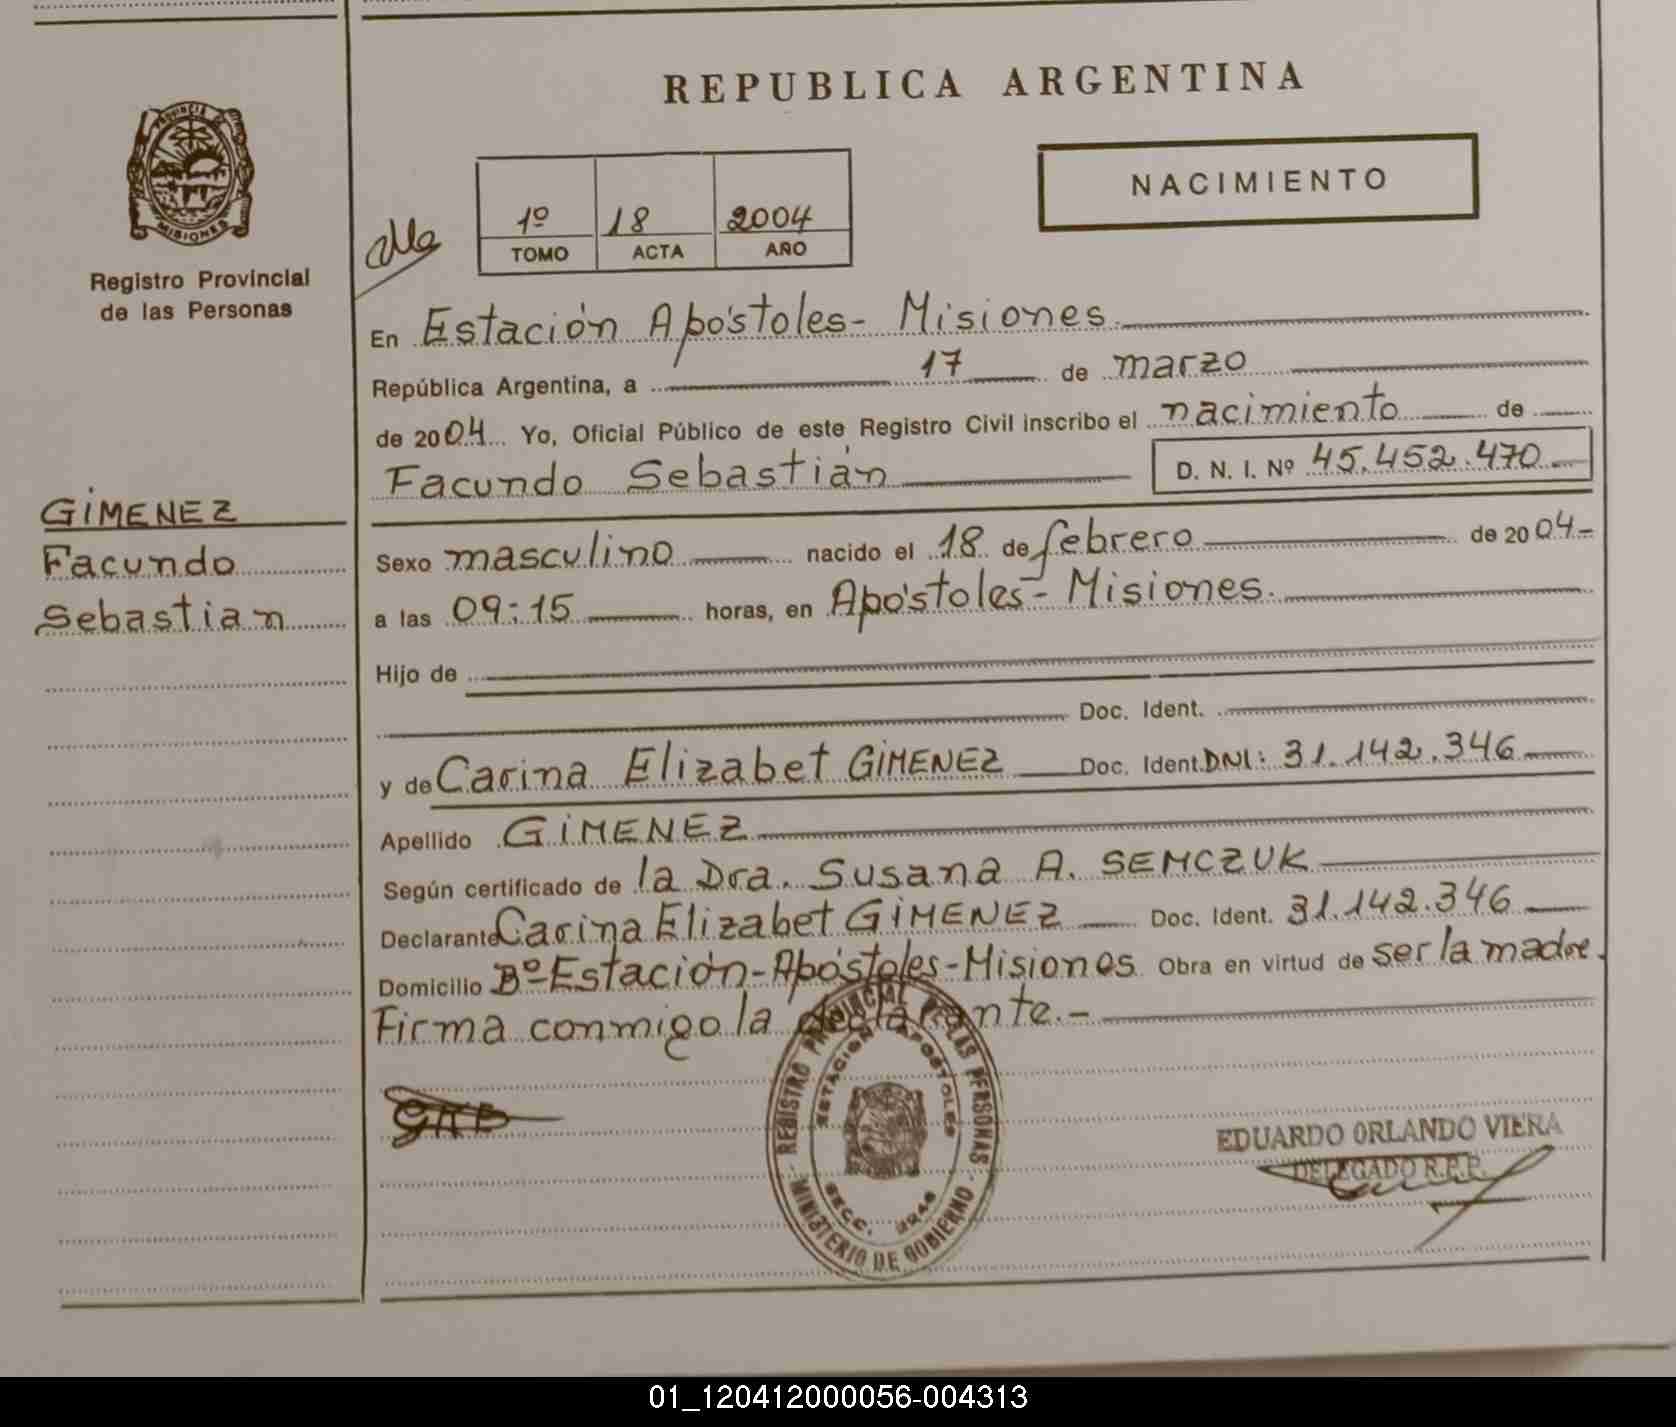 REPUBLICA ARGENTINA
PROVINCIA DE
MISIONES
Registro Provincial
de las Personas
NACIMIENTO
1º 18 2004
TOMO ACTA AÑO
En Estación Apóstoles- Misiones.
República Argentina, a 17 de marzo
de 2004 Yo, Oficial Público de este Registro Civil inscribo el nacimiento de
Facundo Sebastián D. N. I. Nº 45.452.470
GIMENEZ
Facundo
Sebastian
Sexo masculino nacido el 18 de febrero de 2004-
a las 09:15 horas, en Apóstoles- Misiones.
Hijo de
Doc. Ident.
y de Carina Elizabet GIMENEZ Doc. Ident. DNI: 31.142.346
Apellido GIMENEZ
Según certificado de la Dra. Susana A. SEMCZUK
Declarante Carina Elizabet GIMENEZ Doc. Ident. 31.142.346
Domicilio Bº Estación-Apóstoles-Misiones Obra en virtud de ser la madre.
Firma conmigo la declarante.-
REGISTRO PROVINCIAL DE LAS PERSONAS
ESTACION APOSTOLES
SECC.
MINISTERIO DE GOBIERNO
EDUARDO ORLANDO VIERA
DELEGADO R.P.P.
01_120412000056-004313